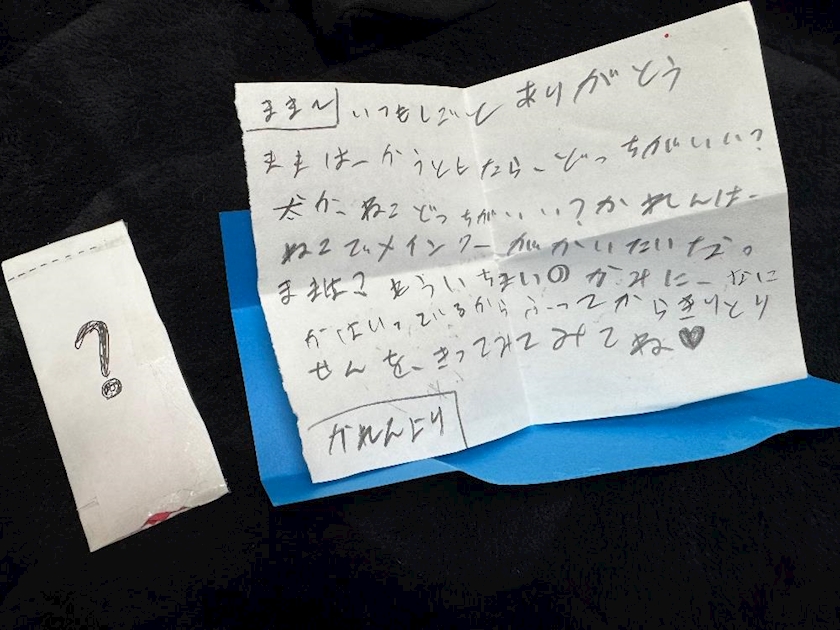 ?
まま〜 いつもしごとありがとう
ままは－かうとしたら、どっちがいい?
犬か、ねこどっちがいい?かれんは－
ねこでメインクーがかいたいな。
ままは?もういちまいのかみに－なに
かはいっているからふってからきりとり
せんを、きってみてみてね♥
かれんより